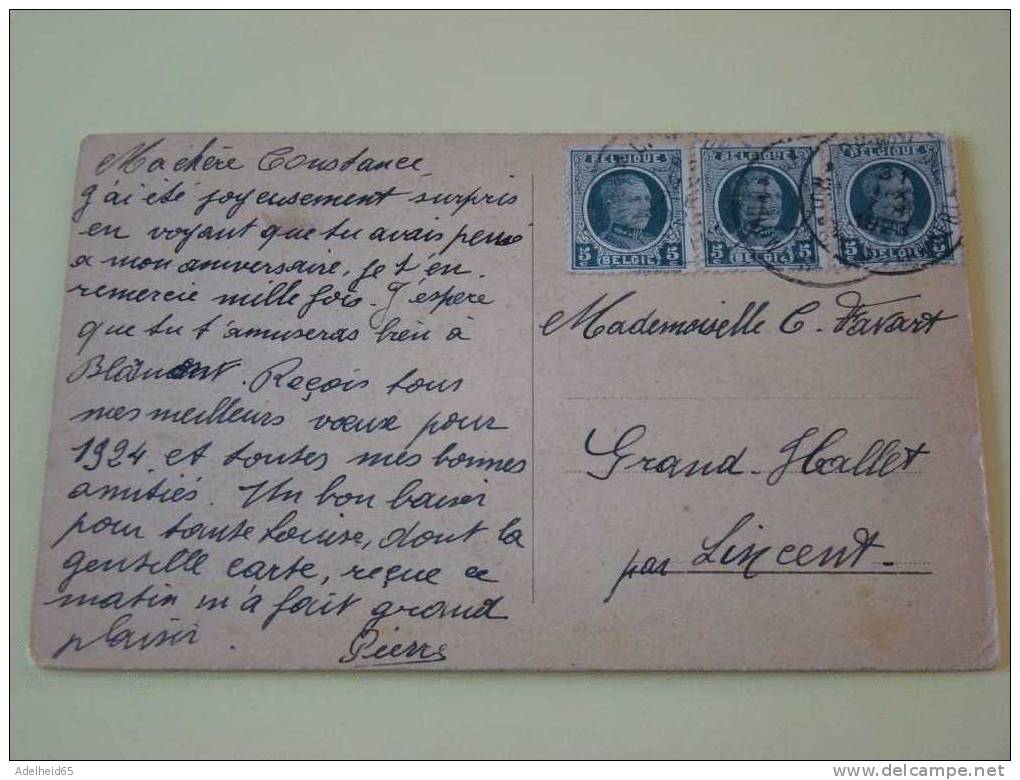 Ma chère Constance,
J'ai été joyeusement surpris
en voyant que tu avais pensé
a mon aniversaire, je t'en
remercie mille fois. J'espère
que tu t'amuseras bien à
Reçois tous
mes meilleurs vœux pour
1924 et toutes mes bonnes
amitiés. Un bon baiser
pour tante Louise, dont la
gentille carte, reçue ce
matin m'a fait grand
plaisir.
Pierre
BELGIQUE
5c 5c
BELGIE
BELGIQUE
5c 5c
BELGIE
BELGIQUE
5c 5c
BELGIE
31
Mademoiselle C. Favart
Grand-Hallet
par Lincent.
Adelheid65
delcampe.net